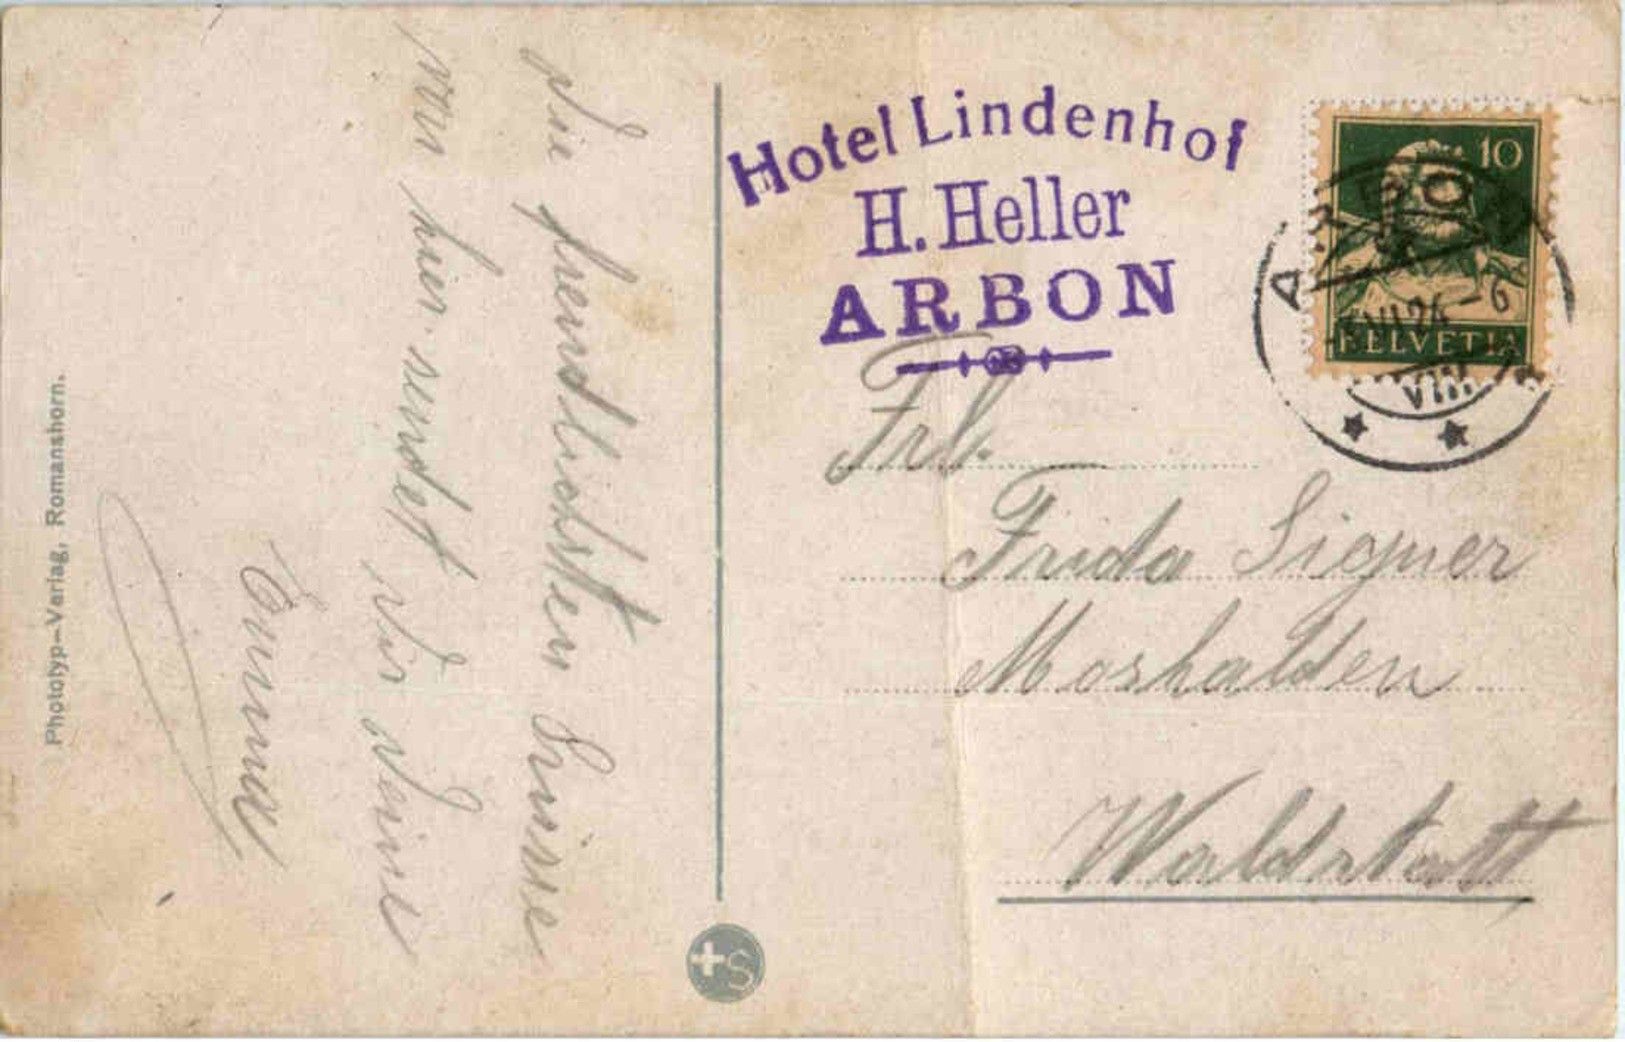 Die freundlichsten Grüsse
von hier sendet Dir Deine
Emma
Phototyp-Verlag, Romanshorn.
Hotel Lindenhof
H. Heller
ARBON
10
HELVETIA
ARBON
VI 24 - 6
VIII
Frl.
Frida Signer
Moshalden
Waldstatt
+S